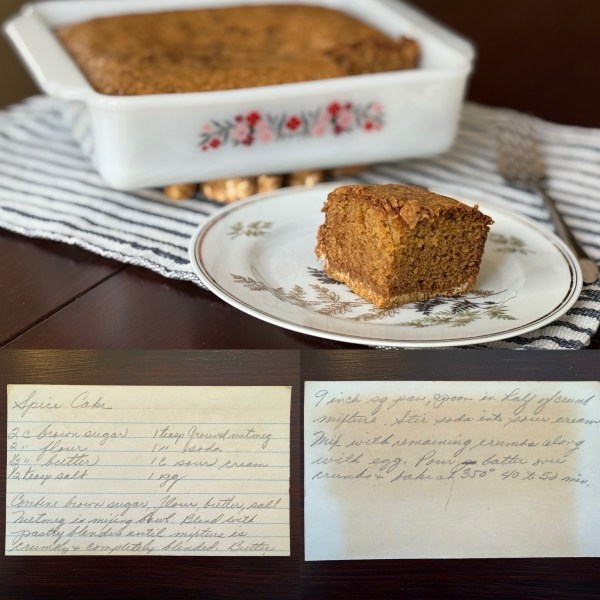 Spice Cake
2 c brown sugar 1 teasp Ground nutmeg
2 " flour 1 " soda
½ " butter 1 c sour cream
½ teasp salt 1 egg
Combine brown sugar, flour, butter, salt
Nutmeg in mixing bowl. Blend with
pastry blender until mixture is
crumbly & completely blended. Butter
9 inch sq pan, spoon in half of crumb
mixture. Stir soda into sour cream
Mix with remaining crumbs along
with egg. Pour batter over
crumbs & bake at 350° 40 to 50 min.